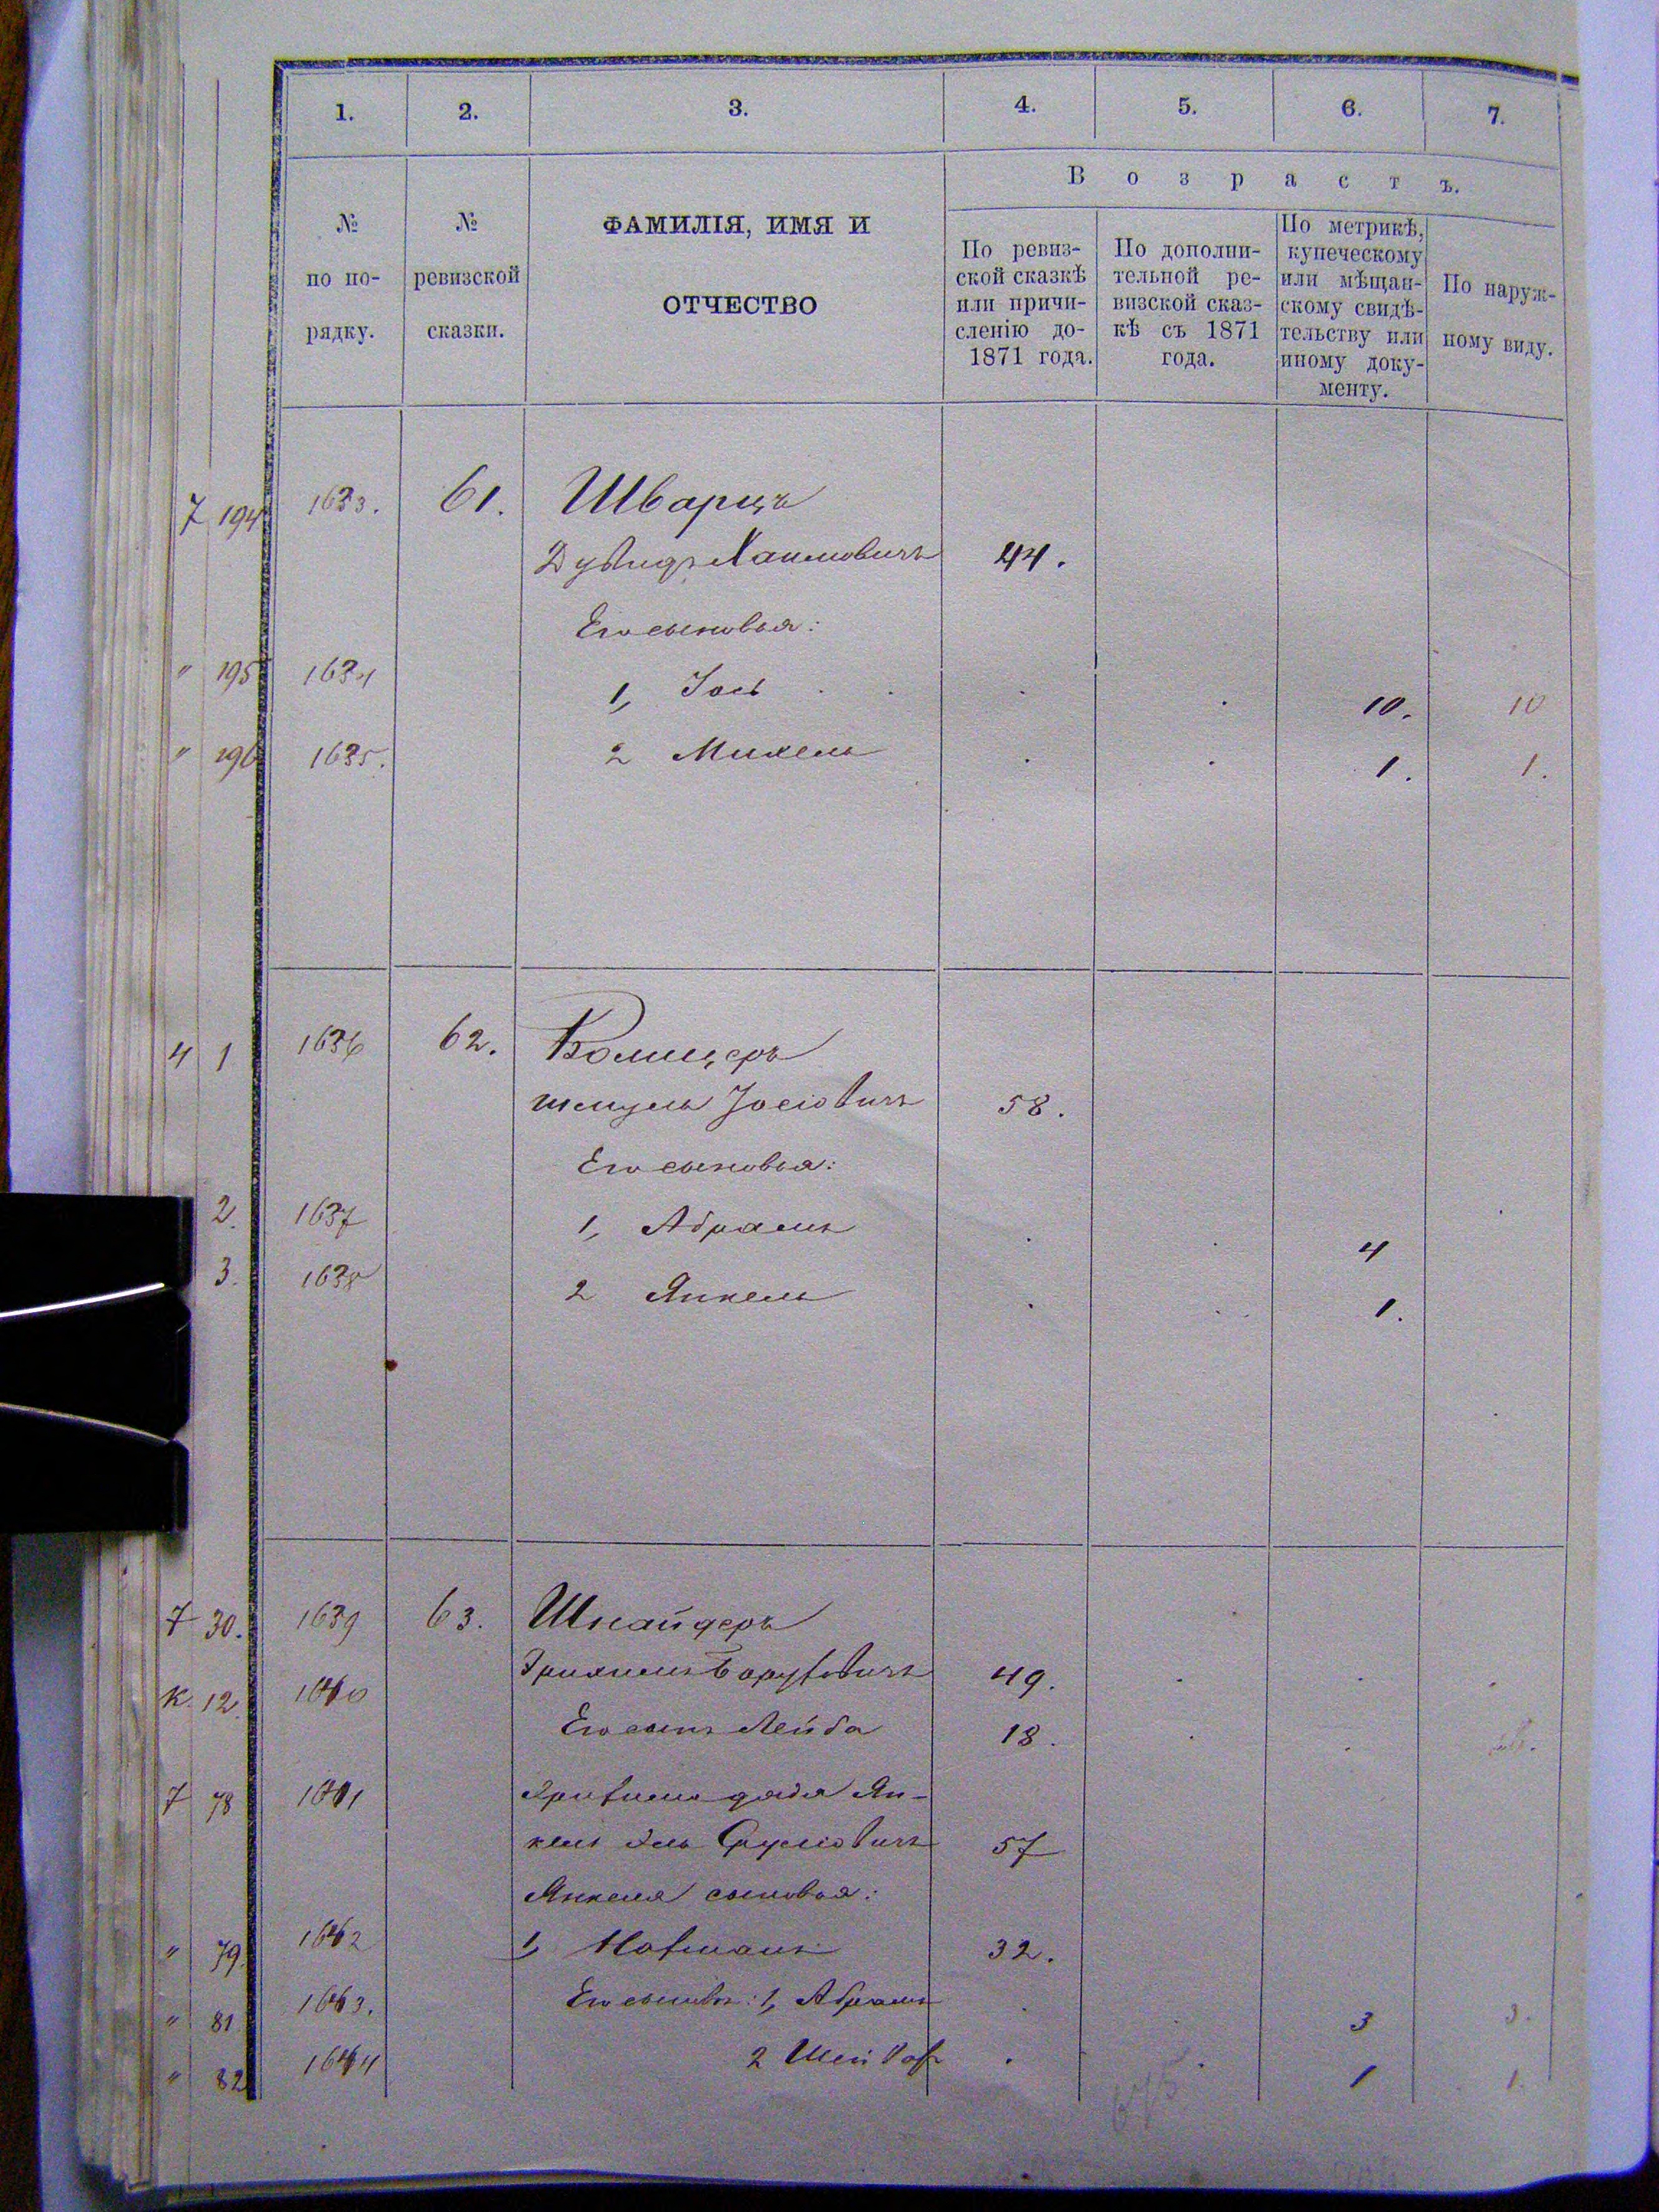 1. 2. 3. 4. 5. 6. 7.
Возрастъ.
№ по порядку.
№ ревизской сказки.
ФАМИЛІЯ, ИМЯ И
ОТЧЕСТВО
По ревиз-
ской сказкѣ
или причи-
сленію до-
1871 года.
По дополни-
тельной ре-
визской сказ-
кѣ съ 1871
года.
По метрикѣ,
купеческому
или мѣщан-
скому свидѣ-
тельству или
иному доку-
менту.
По наруж-
ному виду.
7 194 1633. 61. Шварцъ
Дувидъ Хаимовичъ 44.
Его сыновья:
" 195 1634 1, Іось 10. 10
" 196 1635. 2 Михель 1. 1.
4 1 1636 62.
Шмуль Іосіовичъ 58.
Его сыновья:
2. 1637 1, Абрамъ 4
3. 1638 2 Янкель 1.
7 30. 1639 63. Шнайдеръ
Боруховичъ 49.
К. 12. 1640 Его сынъ Лейба 18.
7 78 1641 дядя Ян-
кель Сруліовичъ 57
Янкеля сыновья:
" 79. 1642 1, 32.
" 81. 1643. Его сыновья: 1, Абрамъ 3 3.
" 82 1644 2 1 1.